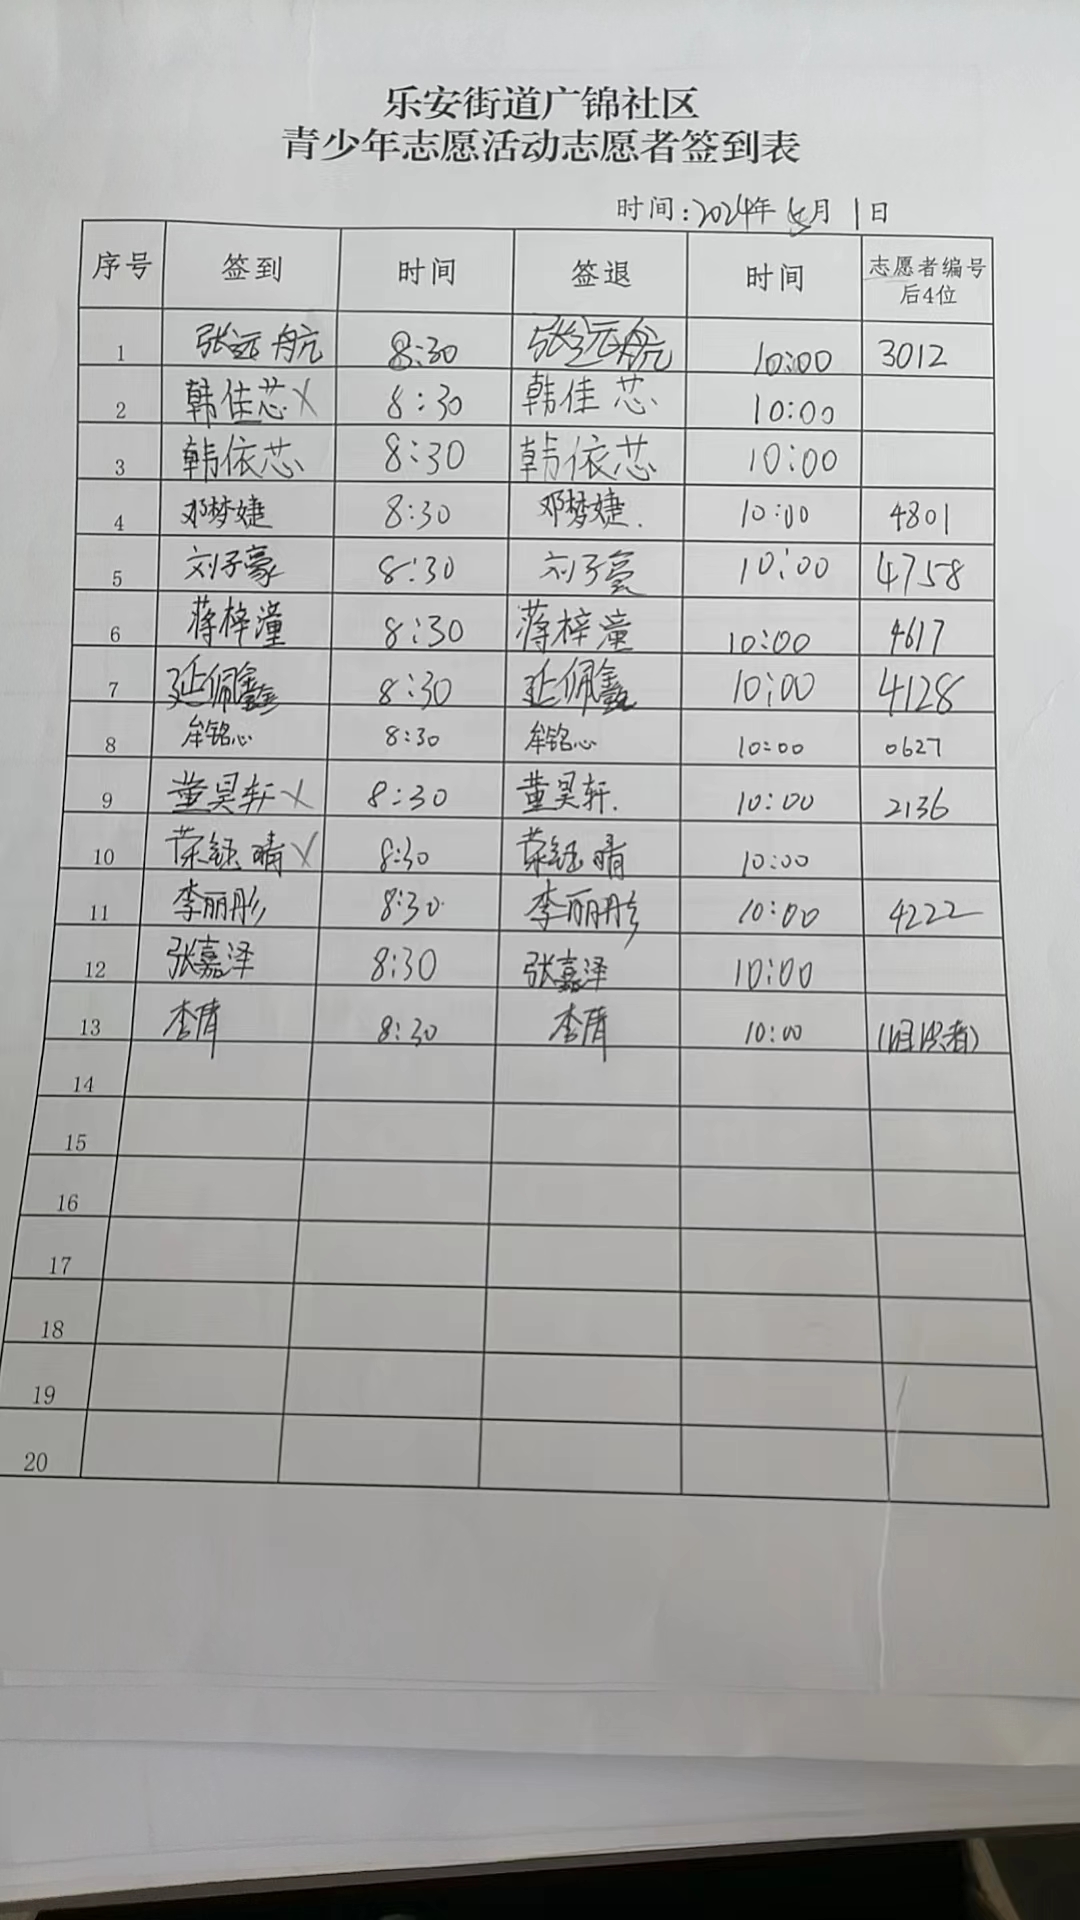 乐安街道广锦社区
青少年志愿活动志愿者签到表
时间:2024年5月1日
序号 签到 时间 签退 时间 志愿者编号后4位
1 张远航 8:30 张远航 10:00 3012
2 韩佳芯X 8:30 韩佳芯 10:00
3 韩依芯 8:30 韩依芯 10:00
4 邓梦婕 8:30 邓梦婕. 10:00 4801
5 刘子豪 8:30 刘子豪 10:00 4758
6 蒋梓潼 8:30 蒋梓潼 10:00 4617
7 延佩鑫 8:30 延佩鑫 10:00 4128
8 牟铭心 8:30 牟铭心 10:00 0627
9 董昊轩X 8:30 董昊轩. 10:00 2136
10 荣钰晴X 8:30 荣钰晴 10:00
11 李丽彤 8:30 李丽彤 10:00 4222
12 张嘉泽 8:30 张嘉泽 10:00
13 李倩 8:30 李倩 10:00
14
15
16
17
18
19
20